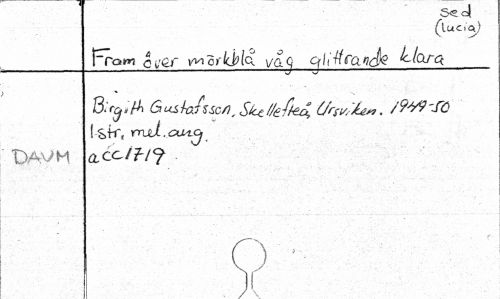 sed
(lucia)
Fram över mörkblå våg glittrande klara
Birgith Gustafsson, Skellefteå, Ursviken. 1949-50
1 str, mel. ang.
DAUM acc 1719